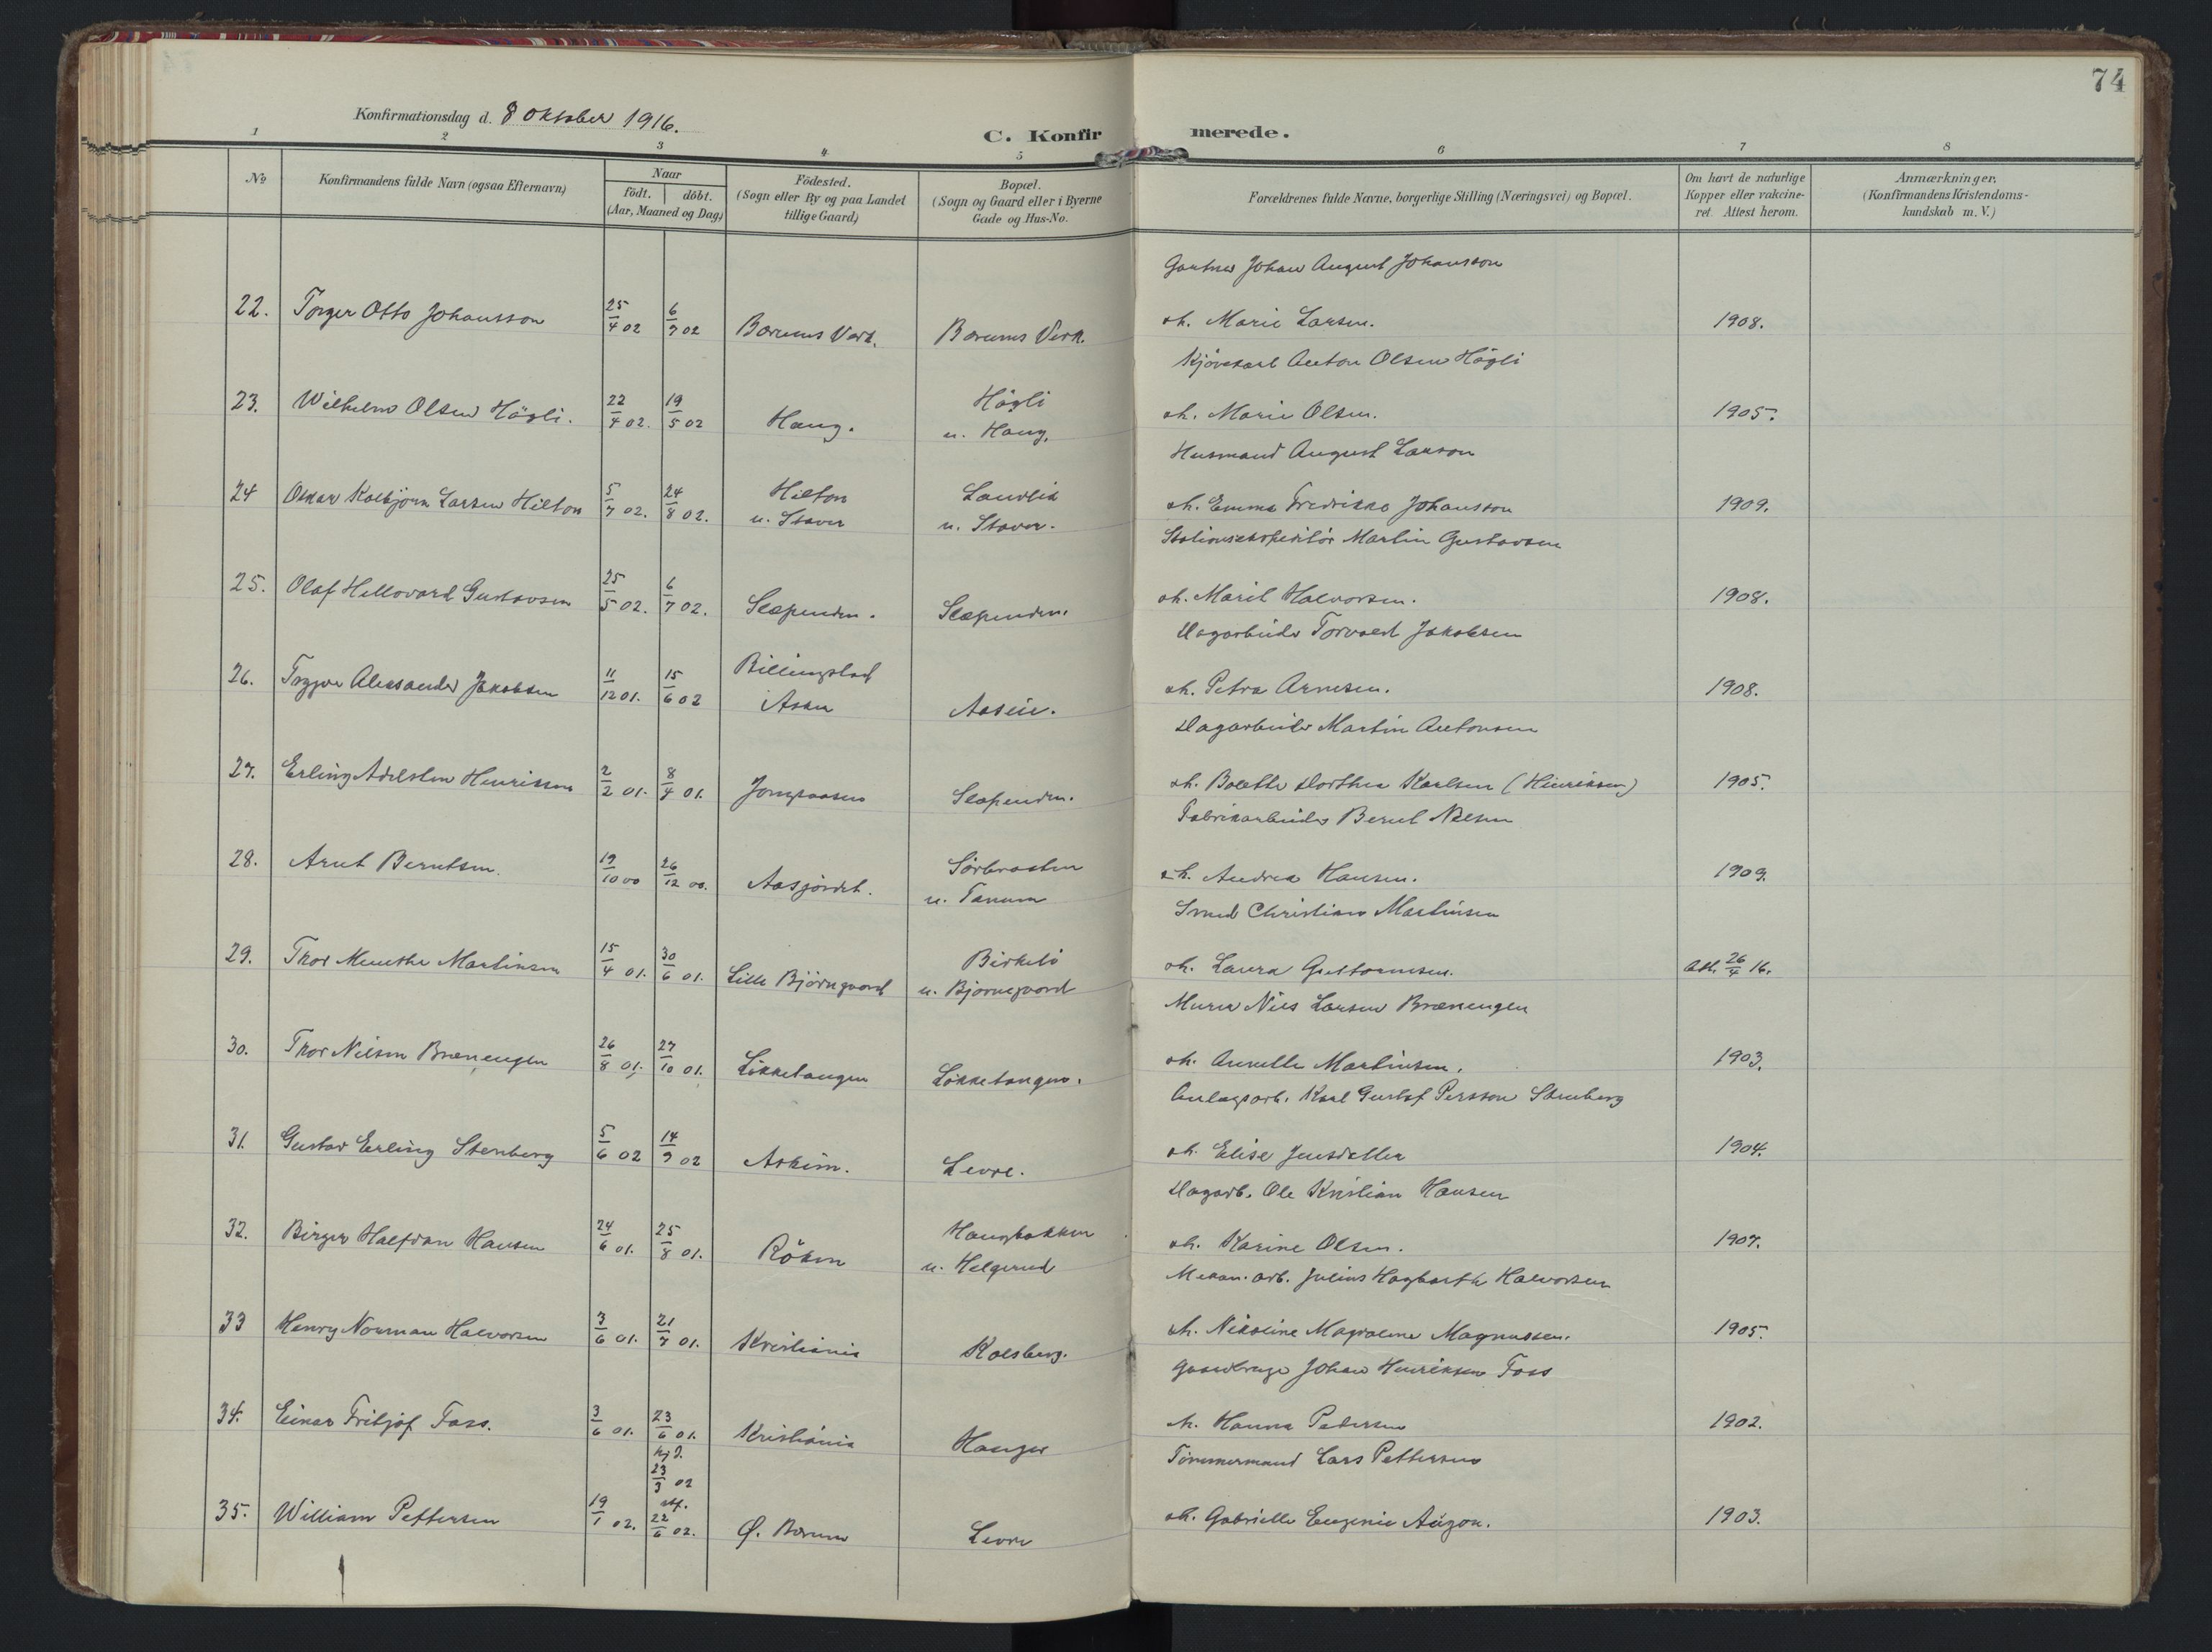 74
Konfirmationsdag d. 8 Oktober 1916.
C. Konfirmerede.
1 2 3 4 5 6 7 8
No
Konfirmandens fulde Navn (ogsaa Efternavn)
Naar
födt. döbt.
(Aar, Maaned og Dag)
Födested.
(Sogn eller By og paa Landet
tillige Gaard)
Bopæl.
(Sogn og Gaard eller i Byerne
Gade og Hus-No.
Forældrenes fulde Navne, borgerlige Stilling (Næringsvei) og Bopæl.
Om havt de naturlige
Kopper eller vakcine-
ret. Attest herom.
Anmærkninger.
(Konfirmandens Kristendoms-
kundskab m. V.)
Gartner Johan August Johansson
22. Torger Otto Johansson 25/4 02 6/7 02 Bærums Verk. Bærums Verk. oh. Marie Larsen. 1908.
Anton Olsen Högli
Högli
23. Wilhelm Olsen Högli. 22/4 02. 19/5 02 Haug. u. Haug. oh. Marie Olsen. 1905.
Husmand August Larson
Hilton
24 Oskar Kolbjörn Larsen Hilton 5/7 02. 24/8 02. u. Staver u. Staver. oh. Emma Fredrikke Johansson 1909.
Stationsekspeditör Martin Gustavsen
25. Olaf Hellovard Gustavsen 25/5 02. 6/7 02. Slæpenden. Slæpenden. oh. Maril Halvorsen. 1908.
Dagarbeider Torvald Jakobsen
Billingstad
26. Trygve Aleksander Jakobsen 11/12 01. 15/6 02 Asker oh. Petra Arnesen. 1908.
Dagarbeider Martin Antonsen
27. Erling Adelsten Henriksen 2/2 01. 8/4 01. Jongsaasen Slæpenden. oh. Bolette Dorthea Karlsen (Henriksen) 1905.
Fabrikarbeider Bernt Nilsen
28. Arnt Berntsen. 19/10 00 26/12 00. Aasjördet. u. Tanum oh. Andrea Hansen. 1909.
Smed Christian Martinsen
Birkeli
29. Thor Menthe Martinsen 15/4 01. 30/6 01. Lille Björnegaard u. Bjornegaard oh. Laura Guttormsen. Att. 26/4 16.
Murer Nils Larsen Brænengen
30. Thor Nilsen Brænengen 26/8 01. 27/10 01. Lökketangen Lökketangen. oh. Annette Martinsen. 1903.
Anlægsarb. Karl Gustaf Persson Stenberg
31. Gustav Erling Stenberg 5/6 02 14/9 02 Askim. Levre. oh. Elise Jensdatter 1904.
Dagarb. Ole Kristian Hansen
Haugbakken
32. Birger Halfdan Hansen 24/6 01. 25/8 01. Röken u. Helgerud oh. Karine Olsen. 1907.
Mekan. arb. Julius Hagbarth Halvorsen
33 Henry Norman Halvorsen 3/6 01. 21/7 01. Kristiania Kolsberg. oh. Nikoline Magdalene Magnussen. 1905.
Gaardbruger Johan Henriksen Foss
34. Einar Fritjof Foss. 3/6 01. 23/6 01. Kristiania Hauger oh. Hanna Pedersen 1902.
hj d. 23/3 02
Tømmermand Lars Pettersen
35. William Pettersen 19/1 02. stf. 22/6 02. Ø. Bærum Levre oh. Gabrielle Eugenie Augon. 1903.